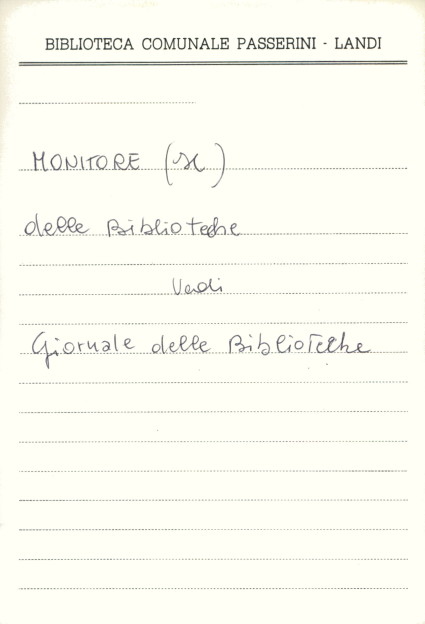 BIBLIOTECA COMUNALE PASSERINI - LANDI
MONITORE (Il)
delle Biblioteche
Vedi
Giornale delle Biblioteche